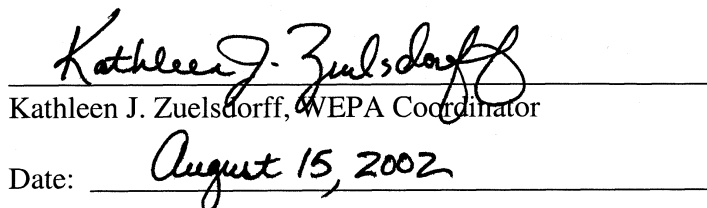 Kathleen J. Zuelsdorff
Kathleen J. Zuelsdorff, WEPA Coordinator
Date: August 15, 2002